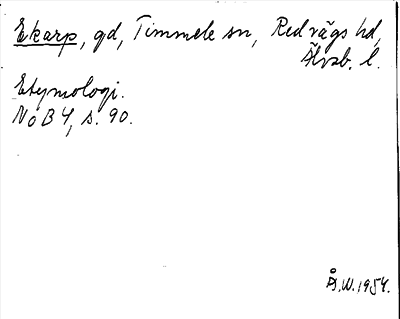 Ekarp, gd, Timmele sn, Redvägs hd,
Älvsb. l.
Etymologi.
NoB 4, s. 90.
Å.W. 1954.